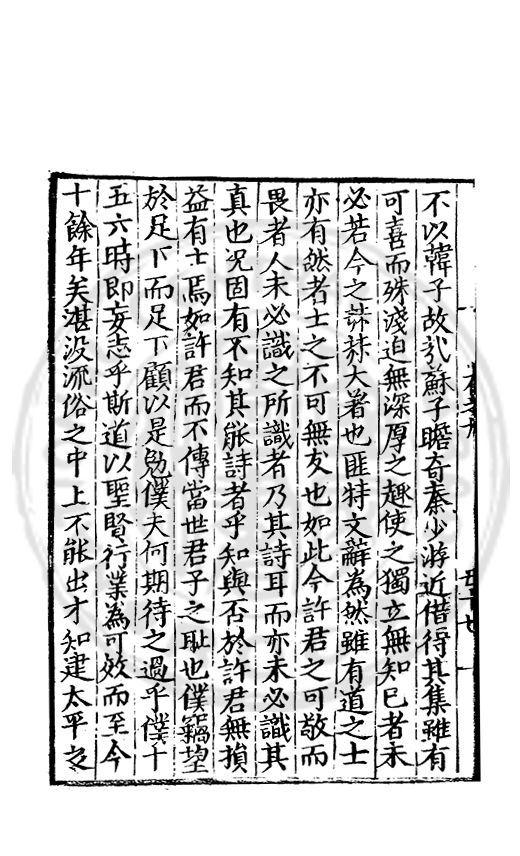 不以韓子故㢤蘇子瞻奇秦少游近借得其集雖有
可喜而殊淺迫無深厚之趣使之獨立無知己者未
必若今之誌誌大著也匪特文辭為然雖有道之士
亦有然者士之不可無友也如此今許君之可敬而
畏者人未必識之所識者乃其詩耳而亦未必識其
真也况固有不知其能詩者乎知與否於許君無損
益有士焉如許君而不傳當世君子之耻也僕竊望
於足下而足下顧以是勉僕夫何期待之過乎僕十
五六時即妄志乎斯道以聖賢行業為可效而至今
十餘年矣湛没流俗之中上不能出才知建太平之